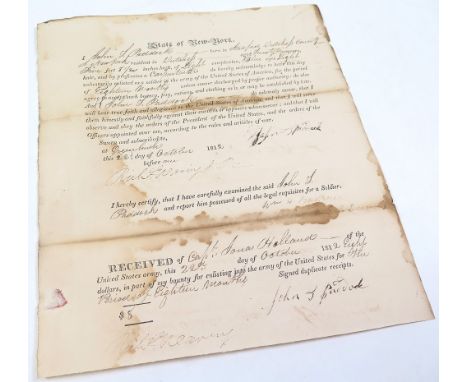 State of New-York.
I John S Paddock born in
New York resident in Dutchess
five feet inches high, of light complexion, eyes, light
hair, and by profession a do hereby acknowledge to have this day
voluntarily enlisted as a soldier in the army of the United States of America, for the period
of Eighteen Months unless sooner discharged by proper authority: do also
agree to accept such bounty, pay, rations, and clothing as is or may be established by law.
And I John S Paddock do solemnly swear, that I
will bear true faith and allegiance to the United States of America, and that I will serve
them honestly and faithfully against their enemies or opposers whomsoever; and that I will
observe and obey the orders of the President of the United States, and the orders of the
Officers appointed over me, according to the rules and articles of war.
Sworn and subscribed to,
at Greenbush
this 22d day of October 1812
before me
John S Paddock
I hereby certify, that I have carefully examined the said John S
Paddock and report him possessed of all the legal requisites for a Soldier.
RECEIVED of Capt. Jonas Holland of the
United States army, this 22nd day of October 1812
dollars, in part of my bounty for enlisting into the army of the United States for the
Period of Eighteen Months
Signed duplicate receipts.
$8
John S Paddock